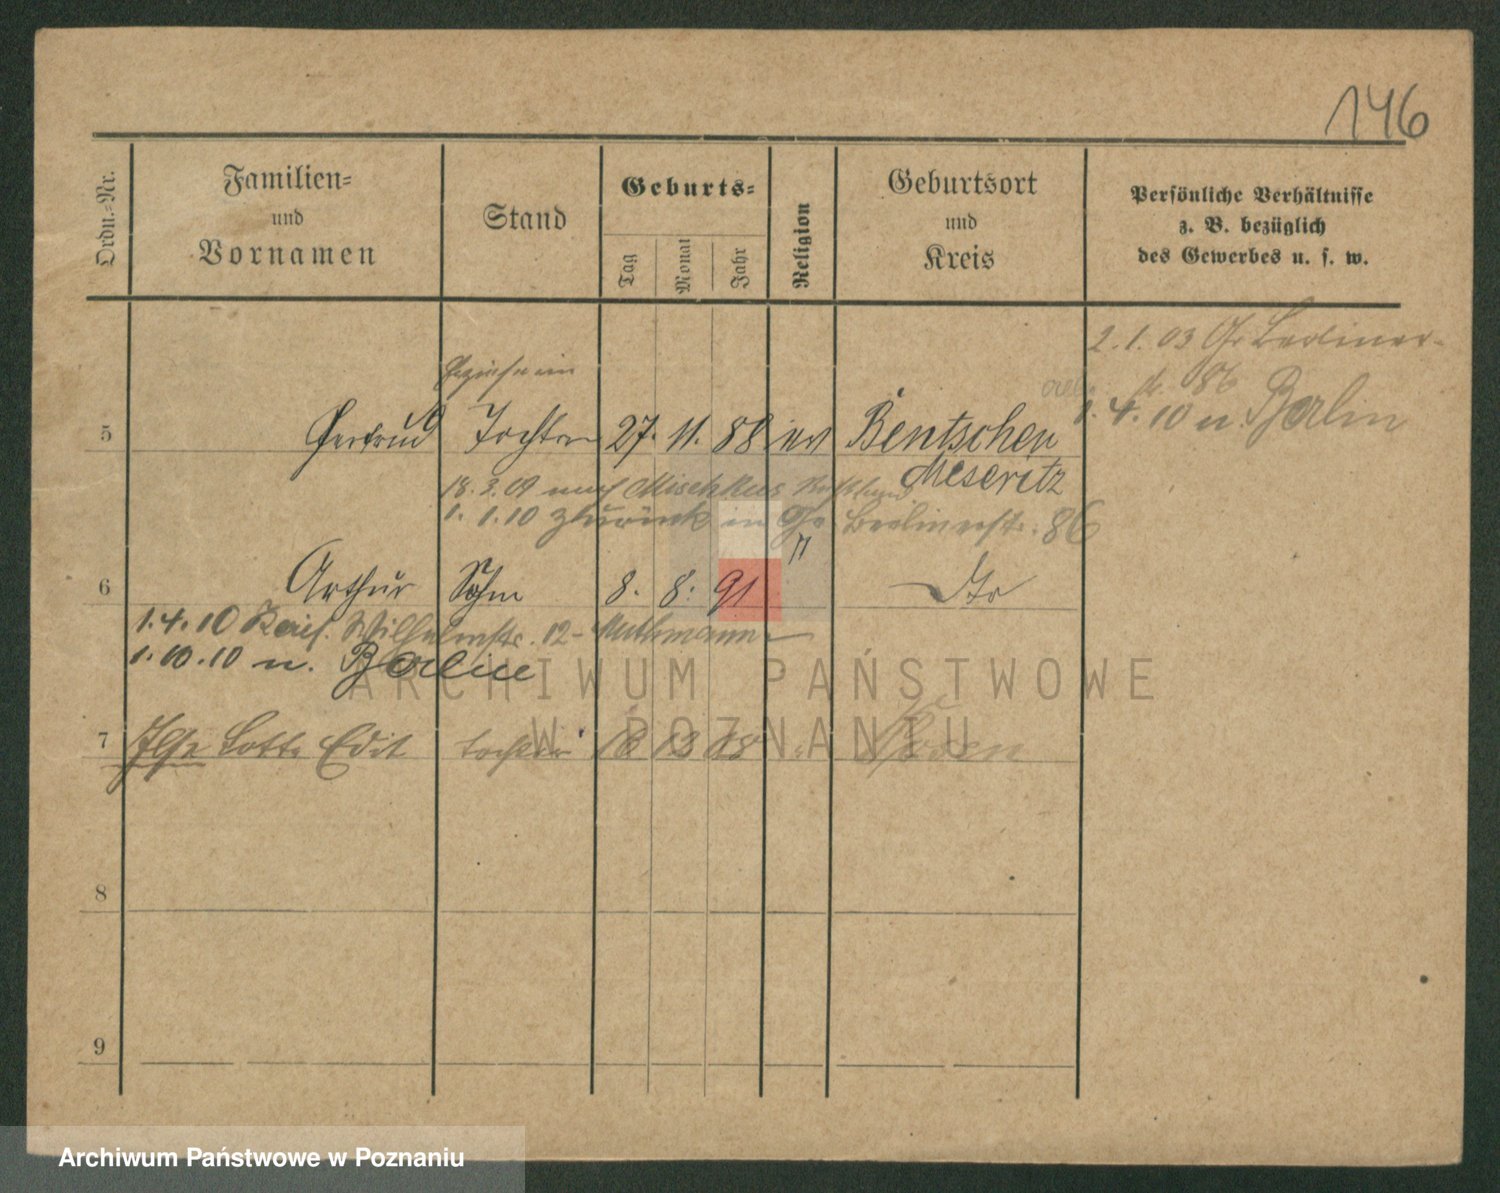 146
Ordn.-Nr.
Familien-
und
Vornamen
Stand
Geburts-
Tag
Monat
Jahr
Religion
Geburtsort
und
Kreis
Persönliche Verhältnisse
z. B. bezüglich
des Gewerbes u. s. w.
2. 1. 03 Gr. Berliner-
str 86
1. 4. 10 n. Berlin
5 Gertrud Tochter 27. 11. 88 ev Bentschen
Meseritz
18. 3. 09 nach
1. 1. 10 zurück in Gr. Berlinerstr. 86
6 Arthur Sohn 8. 8. 91 " Do
1. 4. 10 Wilhelmstr. 12 - Muthmann
1. 10. 10 n. Berlin
7 Ilse Lotte Edit Tochter Posen
8
9
ARCHIWUM PAŃSTWOWE
W POZNANIU
Archiwum Państwowe w Poznaniu